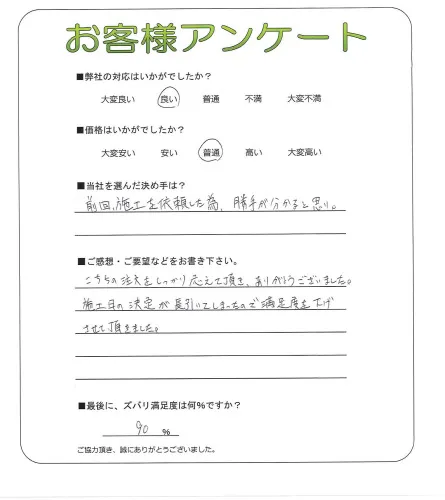 お客様アンケート
■弊社の対応はいかがでしたか？
大変良い 良い 普通 不満 大変不満
■価格はいかがでしたか？
大変安い 安い 普通 高い 大変高い
■当社を選んだ決め手は？
前回、施工を依頼した為、勝手が分かると思い。
■ご感想・ご要望などをお書き下さい。
こちらの注文をしっかり応えて頂き、ありがとうございました。
施工日の決定が長引いてしまったので満足度を下げ
させて頂きました。
■最後に、ズバリ満足度は何%ですか？
90 %
ご協力頂き、誠にありがとうございました。